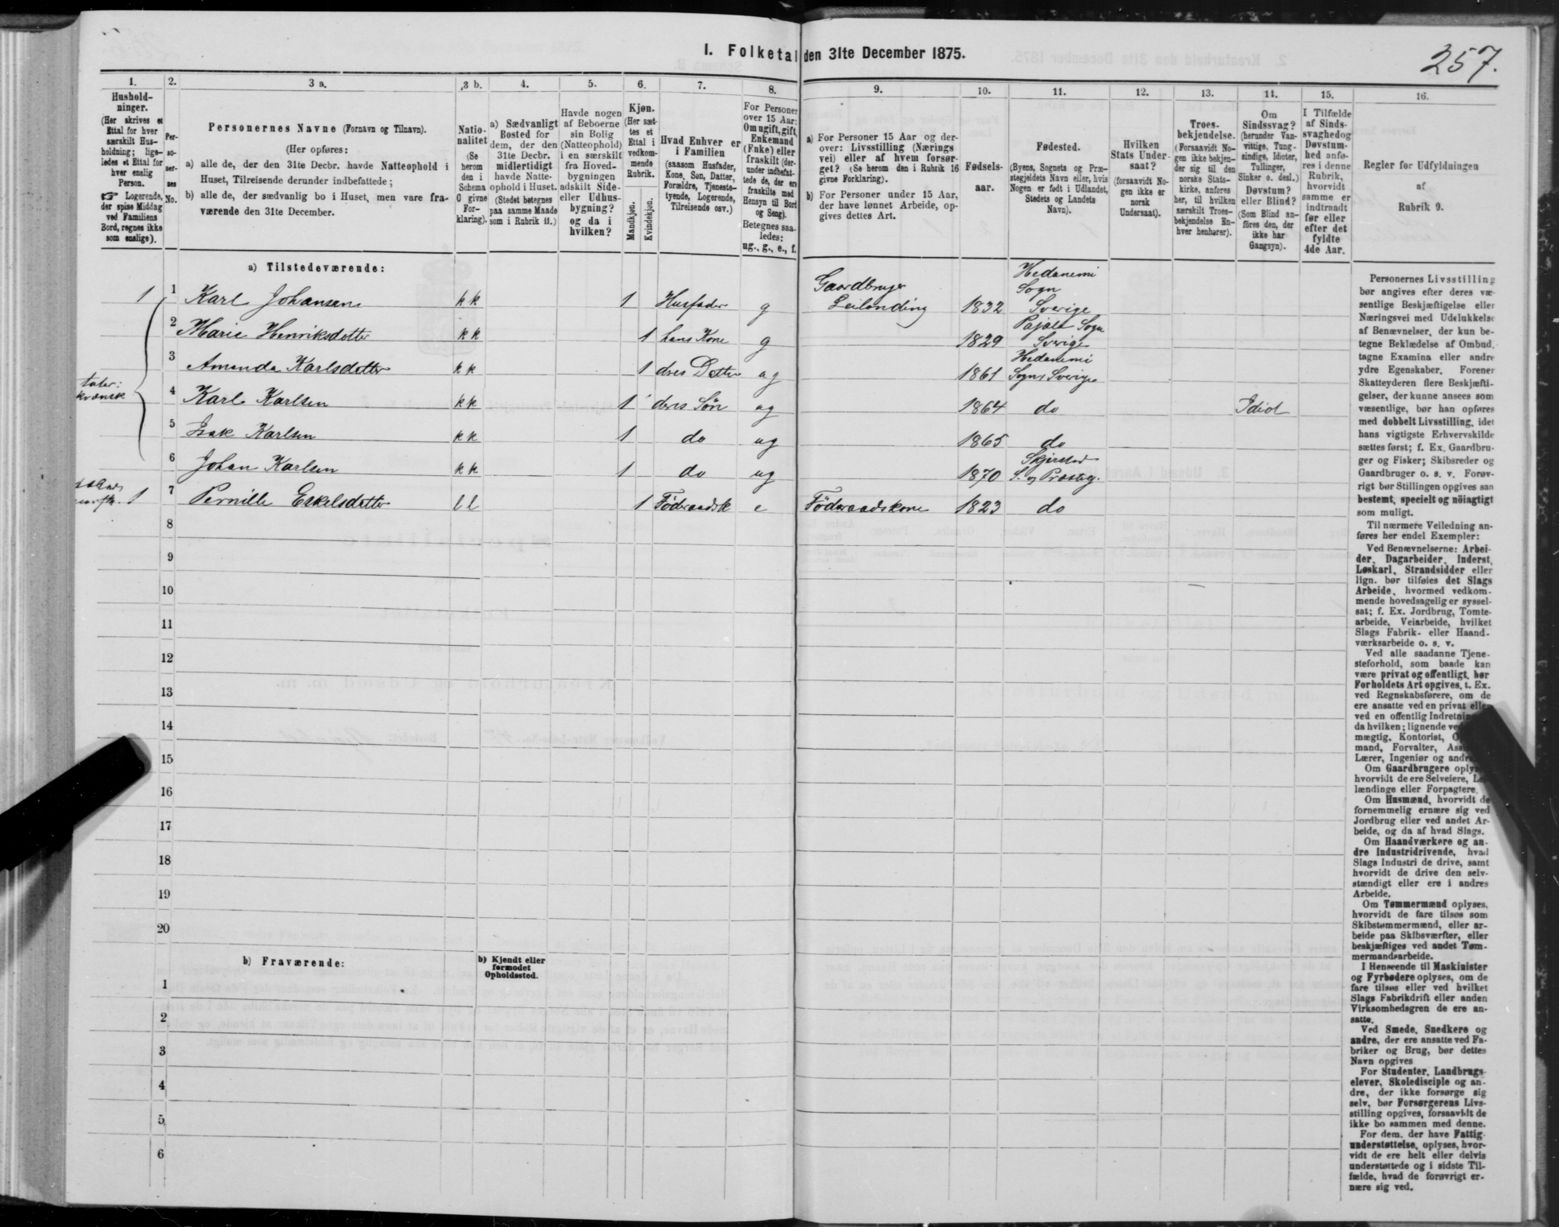 I. Folketal den 31te December 1875.
257.
1.
Hushold-
ninger.
(Her skrives et
Ettal for hver
særskilt Hus-
holdning; lige-
ledes et Ettal for
hver enslig
Person.
☞ Logerende,
der spise Middag
ved Familiens
Bord, regnes ikke
som enslige).
2.
Per-
so-
ner-
nes
No.
3 a.
Personernes Navne (Fornavn og Tilnavn).
(Her opføres:
a) alle de, der den 31te Decbr. havde Natteophold i
Huset, Tilreisende derunder indbefattede;
b) alle de, der sædvanlig bo i Huset, men vare fra-
værende den 31te December.
3 b.
Natio-
nalitet
(Se
herom
den i
Schema
C givne
For-
klaring).
4.
a) Sædvanligt
Bosted for
dem, der den
31te Decbr.
midlertidigt
havde Natte-
ophold i Huset.
(Stedet betegnes
paa samme Maade
som i Rubrik 11.)
5.
Havde nogen
af Beboerne
sin Bolig
(Natteophold)
i en særskilt
fra Hoved-
bygningen
adskilt Side-
eller Udhus-
bygning?
og da i
hvilken?
6.
Kjøn.
(Her sæt-
tes et
Ettal i
vedkom-
mende
Rubrik.
Mandkjøn.
Kvindekjøn.
7.
Hvad Enhver er
i Familien
(saasom Husfader,
Kone, Søn, Datter,
Forældre, Tjeneste-
tyende, Logerende,
Tilreisende osv.)
8.
For Personer
over 15 Aar:
Om ugift, gift,
Enkemand
(Enke) eller
fraskilt (der-
under indbefat-
tede de, der ere
fraskilte med
Hensyn til Bord
og Seng).
Betegnes saa-
ledes:
ug., g., e., f.
9.
a) For Personer 15 Aar og der-
over: Livsstilling (Nærings
vei) eller af hvem forsør-
get? (Se herom den i Rubrik 16
givne Forklaring).
b) For Personer under 15 Aar,
der have lønnet Arbeide, op-
gives dettes Art.
10.
Fødsels-
aar.
11.
Fødested.
(Byens, Sognets og Præ-
stegjeldets Navn eller, hvis
Nogen er født i Udlandet,
Stedets og Landets
Navn).
12.
Hvilken
Stats Under-
saat?
(forsaavidt No-
gen ikke er
norsk
Undersaat).
13.
Troes-
bekjendelse.
(Forsaavidt No-
gen ikke bekjen-
der sig til den
norske Stats-
kirke, anføres
her, til hvilken
særskilt Troes-
bekjendelse En-
hver henhører).
14.
Om
Sindssvag?
(herunder Van-
vittige, Tung-
sindige, Idioter,
Tullinger,
Sinker o. desl.)
Døvstum?
eller Blind?
(Som Blind an-
føres den, der
ikke har
Gangsyn).
15.
I Tilfælde
af Sinds-
svaghed og
Døvstum-
hed anfø-
res i denne
Rubrik,
hvorvidt
samme er
indtraadt
før eller
efter det
fyldte
4de Aar.
16.
Regler for Udfyldningen
af
Rubrik 9.
a) Tilstedeværende:
1 1 Karl Johansen kk 1 Husfader g Gaardbruger Leilænding 1832 Hedanemi Sogn Sverige
2 Marie Henriksdatter kk 1 hans Kone g 1829 Pajala Sogn Sverige
3 Amanda Karlsdatter kk 1 deres Datter ug 1861 Hedanemi Sogn Sverige
4 Karl Karlsen kk 1 deres Søn ug 1864 do Idiot
5 Isak Karlsen kk 1 do ug 1865 do
6 Johan Karlsen kk 1 do ug 1870 Skjerstad S. og Præsteg.
1 7 Pernille Eskelsdatter ll 1 Föderaadsk e Föderaadskone 1823 do
taler:
kvænsk
norsk.
8
9
10
11
12
13
14
15
16
17
18
19
20
b) Fraværende:
b) Kjendt eller
formodet
Opholdssted.
1
2
3
4
5
6
Personernes Livsstilling
bør angives efter deres væ-
sentlige Beskjæftigelse eller
Næringsvei med Udelukkelse
af Benævnelser, der kun be-
tegne Beklædelse af Ombud,
tagne Examina eller andre
ydre Egenskaber. Forener
Skatteyderen flere Beskjæfti-
gelser, der kunne ansees som
væsentlige, bør han opføres
med dobbelt Livsstilling, idet
hans vigtigste Erhvervskilde
sættes først; f. Ex. Gaardbru-
ger og Fisker; Skibsreder og
Gaardbruger o. s. v. Forøv-
rigt bør Stillingen opgives saa
bestemt, specielt og nöiagtigt
som muligt.
Til nærmere Veiledning an-
føres her endel Exempler:
Ved Benævnelserne: Arbei-
der, Dagarbeider, Inderst,
Løskarl, Strandsidder eller
lign. bør tilføies det Slags
Arbeide, hvormed vedkom-
mende hovedsagelig er syssel-
sat; f. Ex. Jordbrug, Tomte-
arbeide, Veiarbeide, hvilket
Slags Fabrik- eller Haand-
værksarbeide o. s. v.
Ved alle saadanne Tjene-
steforhold, som baade kan
være privat og offentligt, bør
Forholdets Art opgives, t. Ex.
ved Regnskabsførere, om de
ere ansatte ved en privat eller
ved en offentlig
da hvilken; lignende
mægtig, Kontorist,
mand, Forvalter,
Lærer, Ingeniør og
Om Gaardbrugere
hvorvidt de ere Selveiere,
lændinge eller Forpagtere.
Om Husmænd, hvorvidt de
fornemmelig ernære sig ved
Jordbrug eller ved andet Ar-
beide, og da af hvad Slags.
Om Haandværkere og an-
dre Industridrivende, hvad
Slags Industri de drive, samt
hvorvidt de drive den selv-
stændigt eller ere i andres
Arbeide.
Om Tømmermænd oplyses,
hvorvidt de fare tilsøs som
Skibstømmermænd, eller ar-
beide paa Skibsværfter, eller
beskjæftiges ved andet Tøm-
mermandsarbeide.
I Henseende til Maskinister
og Fyrbødere oplyses, om de
fare tilsøs eller ved hvilket
Slags Fabrikdrift eller anden
Virksomhedsgren de ere an-
satte.
Ved Smede, Snedkere og
andre, der ere ansatte ved Fa-
briker og Brug, bør dettes
Navn opgives
For Studenter, Landbrugs-
elever, Skoledisciple og an-
dre, der ikke forsørge sig
selv, bør Forsørgerens Livs-
stilling opgives, forsaavidt de
ikke bo sammen med denne.
For dem, der have Fattig-
understøttelse, oplyses, hvor-
vidt de ere helt eller delvis
understøttede og i sidste Til-
fælde, hvad de forøvrigt er-
nære sig ved.